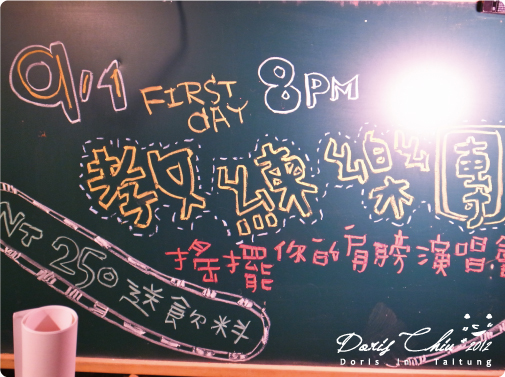 9/1 FIRST DAY 8PM
教練樂團
搖擺你的肩膀演唱會
NT 250 送飲料
Doris Chiu 2012
Doris in Taitung